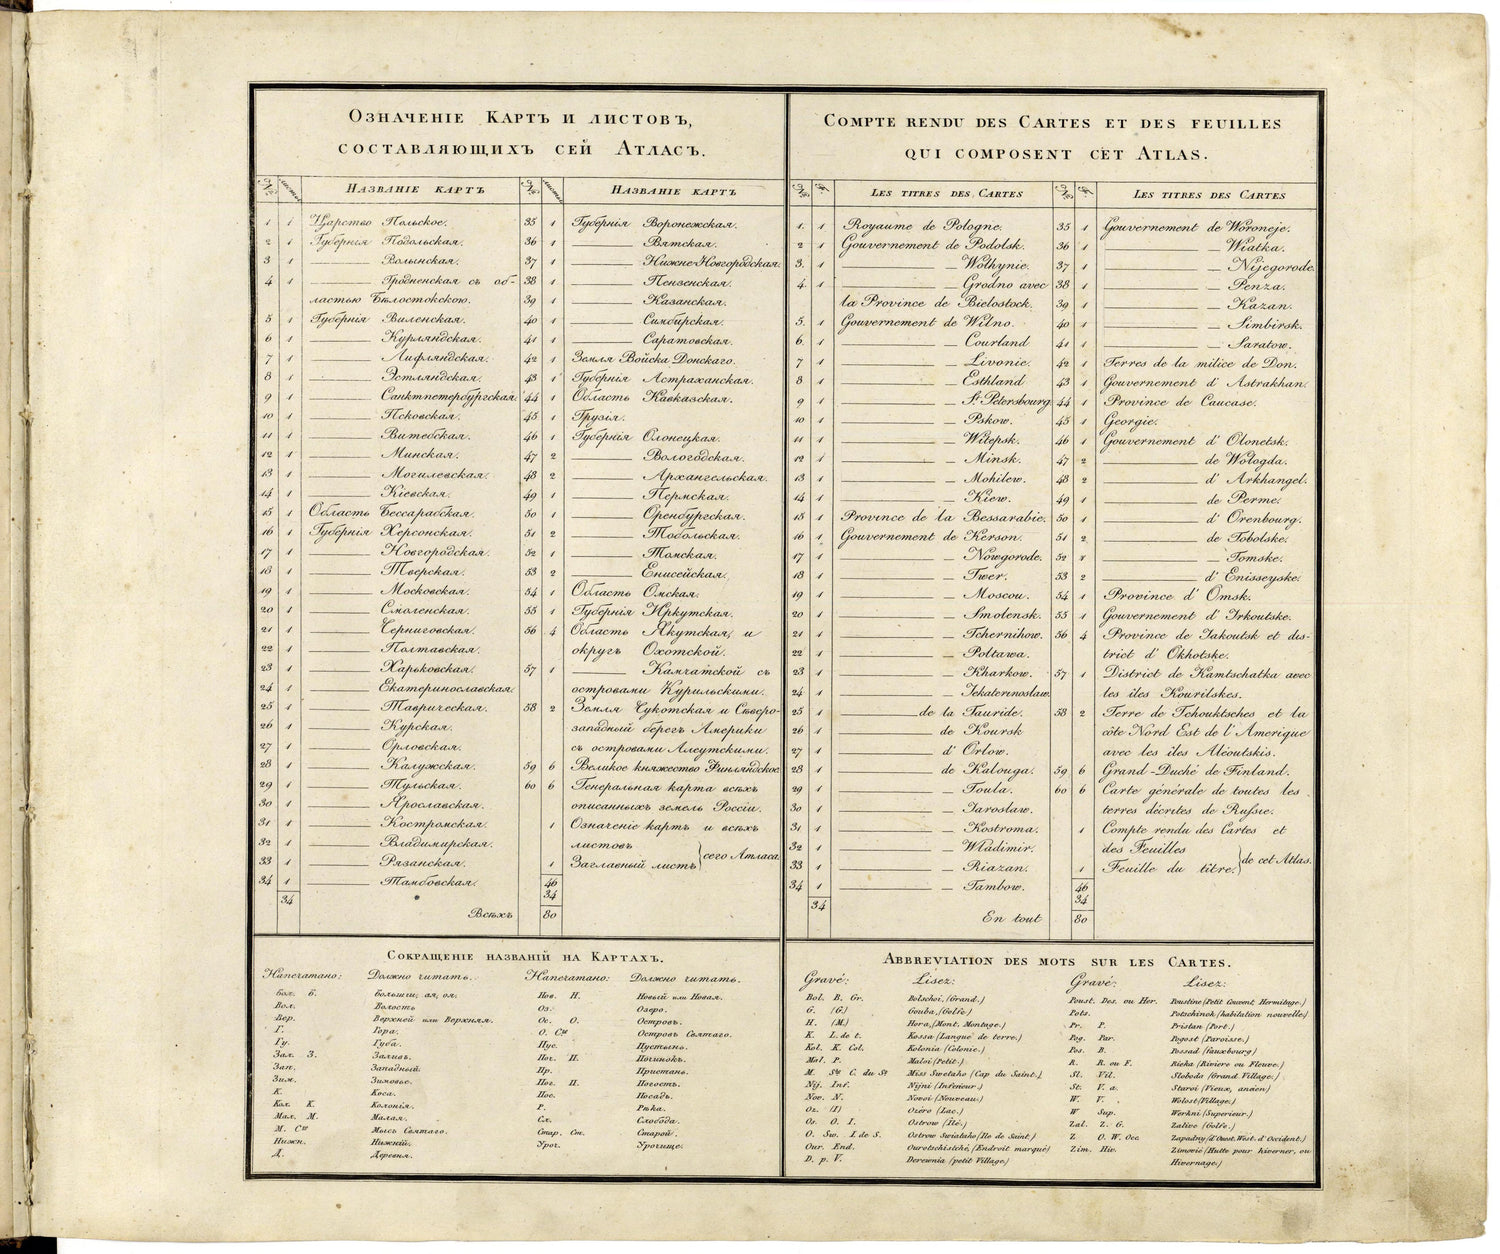 Означеніе Картъ и листовъ,
составляющихъ сей Атласъ.
№ листы Названіе картъ
1 1 Царство Польское.
2 1 Губернія Подольская.
3 1 Волынская.
4 1 Гродненская съ об-
ластью Бѣлостокскою.
5 1 Губернія Виленская.
6 1 Курляндская.
7 1 Лифляндская.
8 1 Эстляндская.
9 1 Санктпетербургская.
10 1 Псковская.
11 1 Витебская.
12 1 Минская.
13 1 Могилевская.
14 1 Кіевская.
15 1 Область Бессарабская.
16 1 Губернія Херсонская.
17 1 Новгородская.
18 1 Тверская.
19 1 Московская.
20 1 Смоленская.
21 1 Черниговская.
22 1 Полтавская.
23 1 Харьковская.
24 1 Екатеринославская.
25 1 Таврическая.
26 1 Курская.
27 1 Орловская.
28 1 Калужская.
29 1 Тульская.
30 1 Ярославская.
31 1 Костромская.
32 1 Владимирская.
33 1 Рязанская.
34 1 Тамбовская.
34
№ листы Названіе картъ
35 1 Губернія Воронежская.
36 1 Вятская.
37 1 Нижне-Новгородская.
38 1 Пензенская.
39 1 Казанская.
40 1 Симбирская.
41 1 Саратовская.
42 1 Земля Войска Донскаго.
43 1 Губернія Астраханская.
44 1 Область Кавказская.
45 1 Грузія.
46 1 Губернія Олонецкая.
47 2 Вологодская.
48 2 Архангельская.
49 1 Пермская.
50 1 Оренбургская.
51 2 Тобольская.
52 1 Томская.
53 2 Енисейская.
54 1 Область Омская.
55 1 Губернія Иркутская.
56 4 Область Якутская, и
округъ Охотской.
57 1 Камчатской съ
островами Курильскими.
58 2 Земля Чукотская и Сѣверо-
западный берегъ Америки
съ островами Алеутскими.
59 6 Великое княжество Финляндское
60 6 Генеральная карта всѣхъ
описанныхъ земель Россіи.
1 Означеніе картъ и всѣхъ
листовъ
сего Атласа
1 Заглавный листъ
46
34
Всѣхъ 80
Compte rendu des Cartes et des feuilles
qui composent cet Atlas.
№ f. Les titres des Cartes
1. 1 Royaume de Pologne.
2 1 Gouvernement de Podolsk.
3. 1 Wolhynie.
4. 1 Grodno avec
la Province de Bielostock.
5. 1 Gouvernement de Wilno.
6. 1 Courland
7 1 Livonie.
8 1 Esthland
9 1 St. Petersbourg.
10 1 Pskow.
11 1 Witepsk.
12 1 Minsk.
13 1 Mohilew.
14 1 Kiew.
15 1 Province de la Bessarabie.
16 1 Gouvernement de Kerson.
17 1 Nowgorode.
18 1 Twer.
19 1 Moscou.
20 1 Smolensk.
21 1 Tchernihow.
22 1 Poltawa.
23 1 Kharkow.
24 1 Jekaterinoslaw.
25 1 de la Tauride.
26 1 de Koursk
27 1 d' Orlow.
28 1 de Kalouga.
29 1 Toula.
30 1 Jaroslaw.
31 1 Kostroma.
32 1 Wladimir.
33 1 Riazan.
34 1 Tambow.
34
№ f. Les titres des Cartes
35 1 Gouvernement de Woroneje.
36 1 Wiatka.
37 1 Nijegorode.
38 1 Penza.
39 1 Kazan.
40 1 Simbirsk.
41 1 Saratow.
42 1 Terres de la milice de Don.
43 1 Gouvernement d' Astrakhan.
44 1 Province de Caucase.
45 1 Georgie.
46 1 Gouvernement d' Olonetsk.
47 2 de Wologda.
48 2 d' Arkhangel.
49 1 de Perme.
50 1 d' Orenbourg.
51 2 de Tobolske.
52 1 Tomske.
53 2 d' Enisseyske.
54 1 Province d' Omsk.
55 1 Gouvernement d' Irkoutske.
56 4 Province de Jakoutsk et dis-
trict d' Okhotske.
57 1 District de Kamtschatka avec
les îles Kourilskes.
58 2 Terre de Tchouktsches et la
côte Nord Est de l' Amerique
avec les îles Aléoutskis.
59 6 Grand-Duché de Finland.
60 6 Carte générale de toutes les
terres décrites de Russie.
1 Compte rendu des Cartes et
des Feuilles
de cet Atlas.
1 Feuille du titre.
46
34
En tout 80
Сокращеніе названій на Картахъ.
Напечатано: Должно читать.
Бол. Б. Большій, ая, ое.
Вол. Волость
Вер. Верхней или Верхняя.
Г. Гора.
Гу. Губа.
Зал. З. Заливъ.
Зап. Западный.
Зим. Зимовье.
К. Коса.
Кол. К. Колонія.
Мал. М. Малая.
М. Свг Мысъ Святаго.
Нижн. Нижній.
Д. Деревня.
Напечатано: Должно читать.
Нов. Н. Новый или Новая.
Оз. Озеро.
Ос. О. Островъ.
О. Свг Островъ Святаго.
Пус. Пустынь.
Поч. П. Починокъ.
Пр. Пристань.
Пог. П. Погостъ.
Пос. Посадъ.
Р. Рѣка.
Сл. Слобода.
Стар. Ст. Старой.
Уроч. Урочище.
Abbreviation des mots sur les Cartes.
Gravé: Lisez:
Bol. B. Gr. Bolschoi, (Grand.)
G. (G.) Gouba, (Golfe.)
H. (M.) Hora, (Mont, Montage.)
K. L. de t. Kossa (Langue de terre.)
Kol. K. Col. Kolonia (Colonie.)
Mal. P. Maloi (Petit.)
M. Sw C. du St Miss Swetaho (Cap du Saint.)
Nij. Inf. Nijni (Inferieur.)
Nov. N. Novoi (Nouveau.)
Oz. (L) Ozéro (Lac.)
Os. O. I. Ostrow (Ile.)
O. Sw. I. de S. Ostrow Swiataho (Ile de Saint)
Our. End. Ouretschistché, (Endroit marqué)
D. p. V. Derewnia (petit Village.)
Gravé: Lisez:
Poust. Des. ou Her. Poustine (Petit Couvent, Hermitage.)
Pots. Potschinok (habitation nouvelle.)
Pr. P. Pristan (Port.)
Pog. Par. Pogost (Paroisse.)
Pos. B. Possad (Fauxbourg)
R. R. ou F. Rieka (Riviere ou Fleuve.)
Sl. Vil. Sloboda (Grand Village.)
St. V. a. Staroi (Vieux, ancien)
W. V. Wolost (Village.)
W Sup. Werkni (Superieur.)
Zal. Z. G. Zalive (Golfe.)
Z. O. W. Occ. Zapadniy (d'Ouest, West. d' Occident.)
Zim. Hiv. Zimovié (Hutte pour hiverner, ou
Hivernage.)